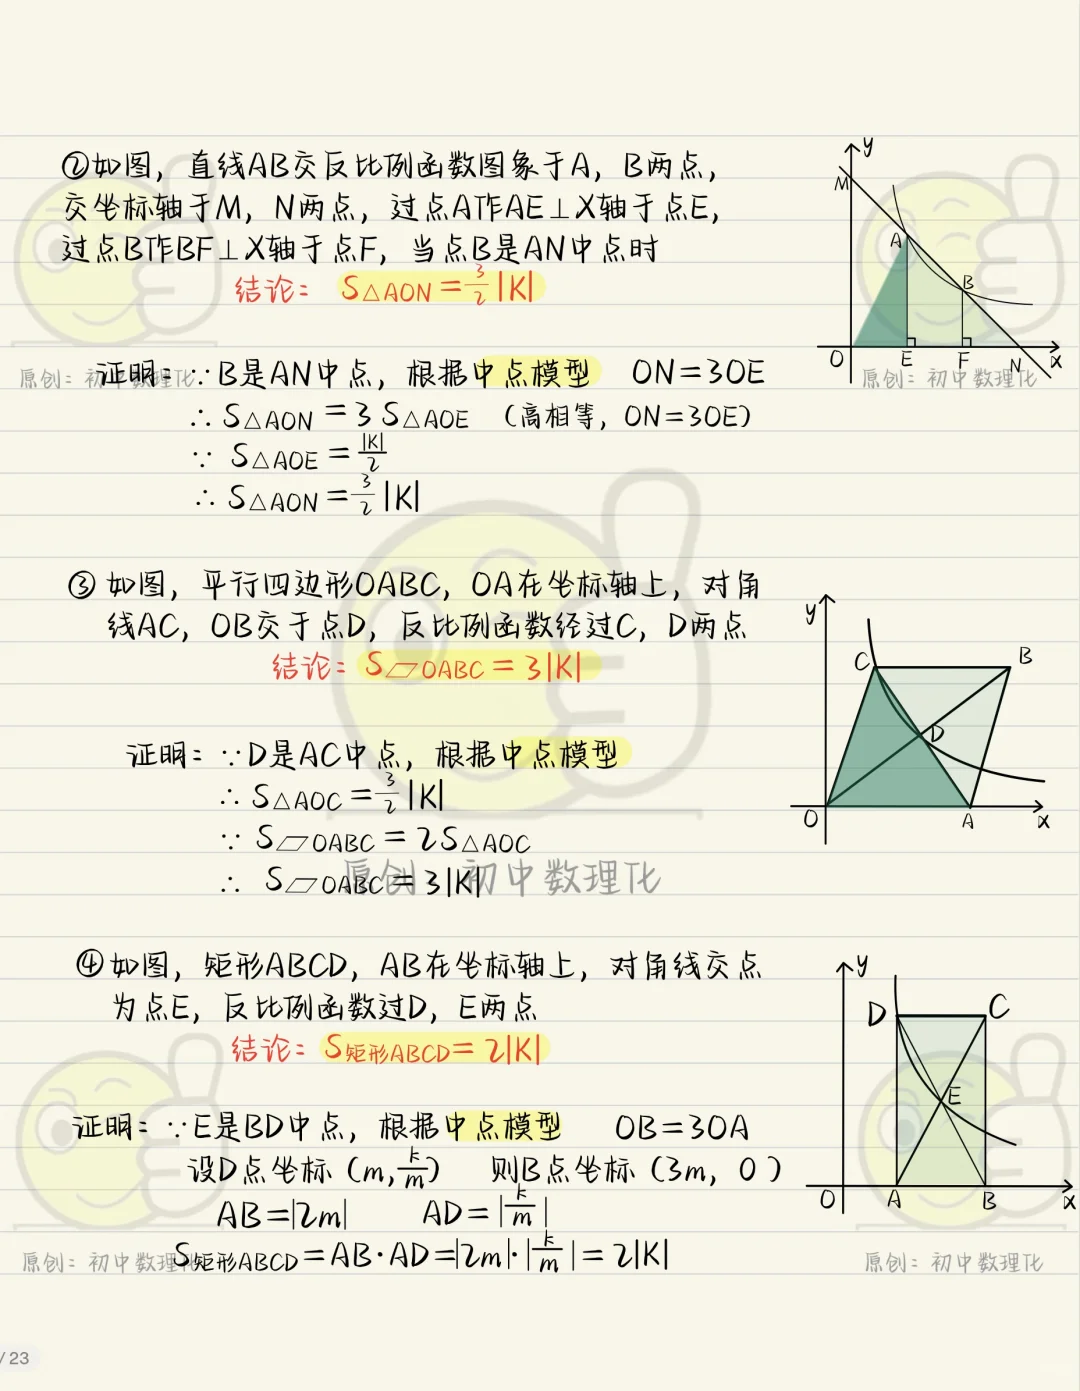 ②如图，直线AB交反比例函数图象于A，B两点，
交坐标轴于M，N两点，过点A作AE⊥X轴于点E，
过点B作BF⊥X轴于点F，当点B是AN中点时
结论：S△AON=3/2|K|
y
M
A
B
O E F N x
原创：初中数理化
原创：初中数理化
证明：∵B是AN中点，根据中点模型 ON=3OE
∴S△AON=3S△AOE （高相等，ON=3OE）
∵ S△AOE=|K|/2
∴S△AON=3/2|K|
③如图，平行四边形OABC，OA在坐标轴上，对角
线AC，OB交于点D，反比例函数经过C，D两点
结论：S▱OABC=3|K|
y
C B
D
O A x
证明：∵D是AC中点，根据中点模型
∴S△AOC=3/2|K|
∵ S▱OABC=2S△AOC
∴ S▱OABC=3|K|
原创：初中数理化
④如图，矩形ABCD，AB在坐标轴上，对角线交点
为点E，反比例函数过D，E两点
结论：S矩形ABCD=2|K|
y
D C
E
O A B x
证明：∵E是BD中点，根据中点模型 OB=3OA
设D点坐标（m,k/m） 则B点坐标（3m，0）
AB=|2m| AD=|k/m|
S矩形ABCD=AB·AD=|2m|·|k/m|=2|K|
原创：初中数理化
原创：初中数理化
/23